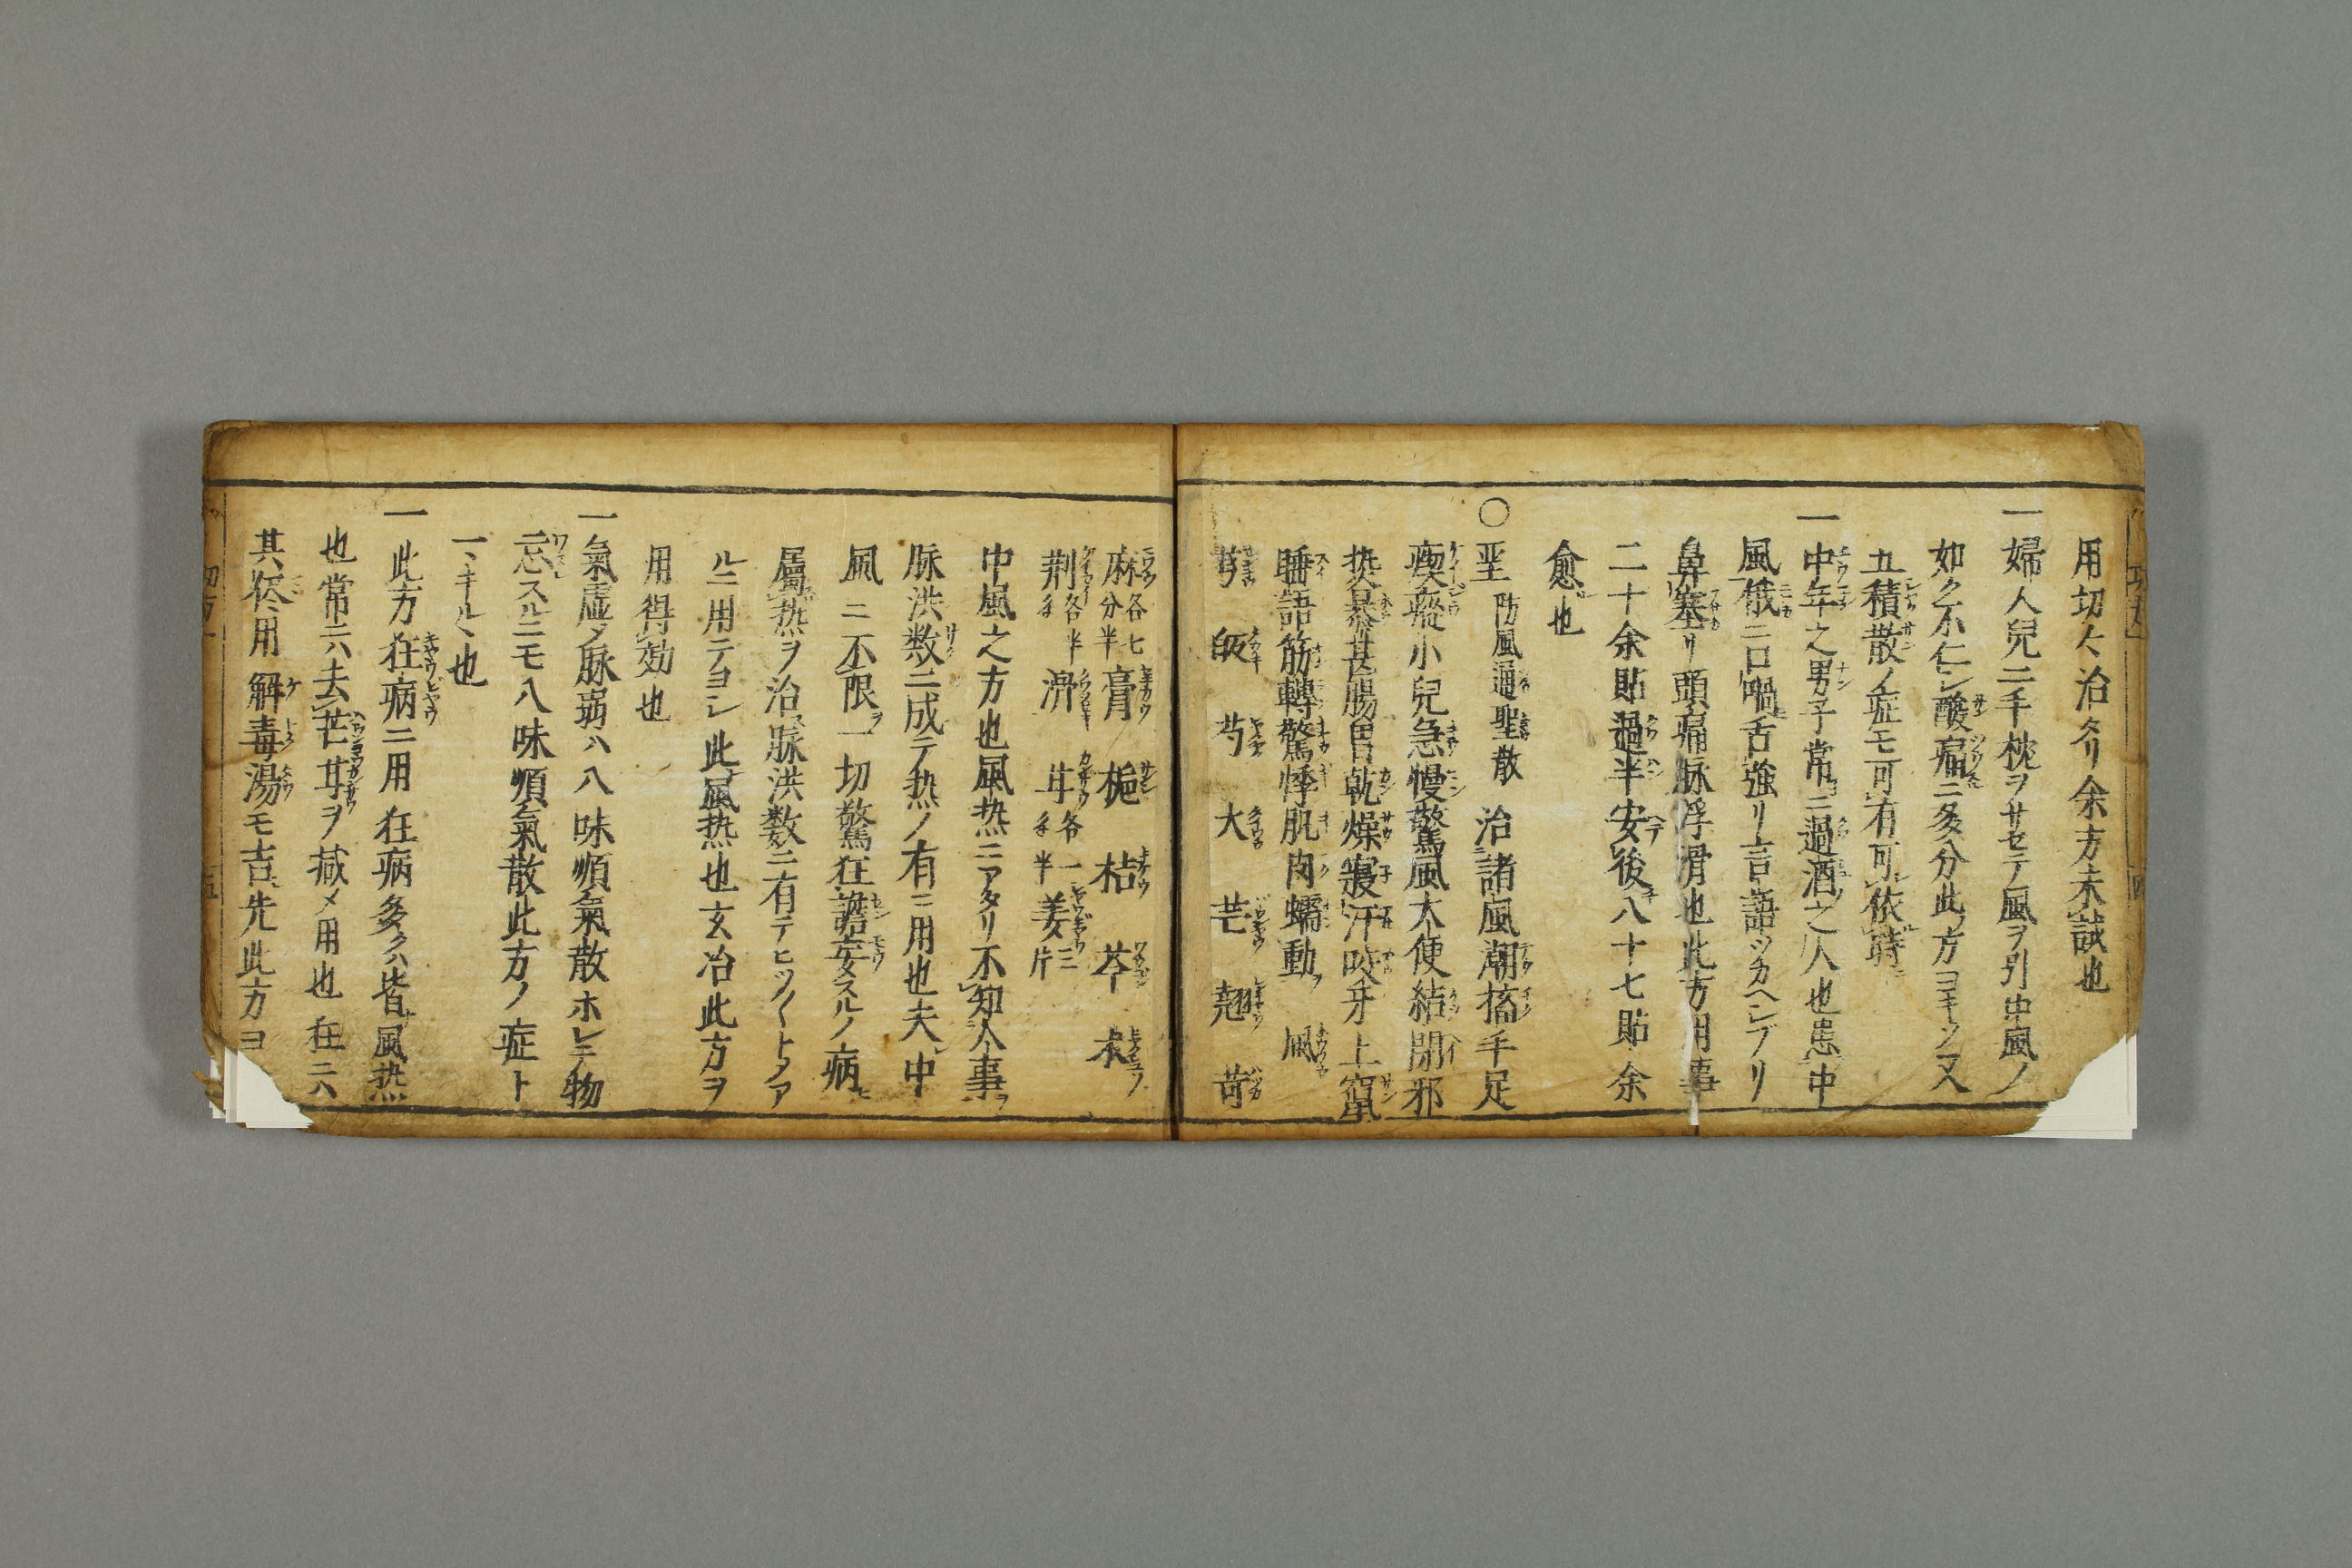 用切々治多リ余方未試也
一婦人兒ニ手枕ヲサセテ風ヲ引中風ノ
如ク不仁シ酸痛ニ多分此ノ方ヨキソ又
五積散ノ症モ可有可依時
一中年之男子常ニ過酒之人也患中
風俄ニ口喎舌強リ言語ツカヘシブリ
鼻塞リ頭痛脉浮滑也此方用事
二十余貼過半安後八十七貼余
愈也
○聖防風通聖散 治諸風潮搐手足
瘈瘲小兒急慢驚風大便結閉邪
热暴甚腸胃乾燥寢汗咬牙上竄
睡語筋轉驚悸肌肉蠕動 風
芎 皈 芍 大 芒 翹 苛
麻各七分半膏 梔 桔 芩 朮
荆各半 滑 甘各一半 姜三片
中風之方也風热ニアタリ不知人事
脉洪数ニ成テ热ノ有ニ用也夫中
風ニ不限一切驚狂譫妄スルノ病
属热ヲ治脉洪数ニ有テヒツ〱トアア
ルニ用テヨシ此風热也玄冶此方ヲ
用得効也
一氣虚ノ脉弱ハ八味順氣散ホレテ物
忘スルニモ八味順氣散此方ノ症ト
一ヽキル也
一此方狂病ニ用狂病多クハ皆風热
也常ニハ去芒甘ヲ减メ用也狂ニハ
其侭用 解毒湯モ吉先此方ヨ